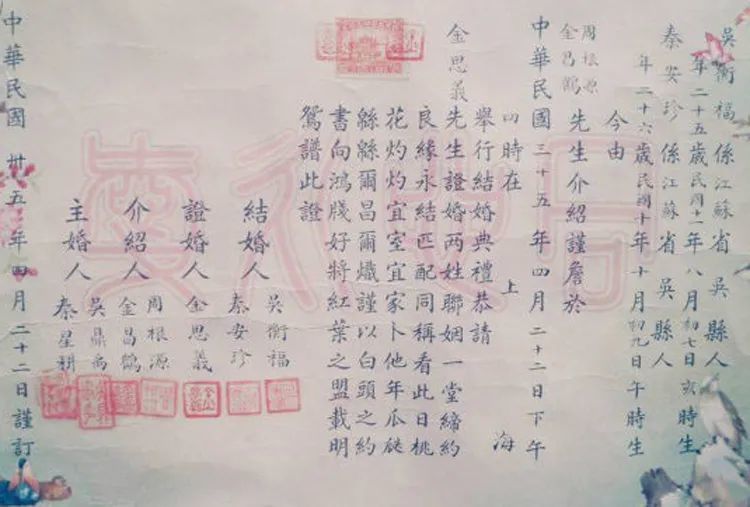 吳衡福 係江蘇省 吳縣人
年二十五歲民國十一年八月初七日亥時生
秦安珍 係江蘇省 吳縣人
年二十六歲民國十年十月初九日午時生
今由
周根源
金昌鶴 先生介紹謹詹於
中華民國 三十五年四月二十二日下午
四時在 上海
舉行結婚典禮恭請
金思義 先生證婚两姓聯姻一堂締約
良緣永結匹配同稱看此日桃
花灼灼宜室宜家卜他年瓜瓞
緜緜爾昌爾熾謹以白頭之約
書向鴻牋好將紅葉之盟載明
鴛譜此證
結婚人 吳衡福 秦安珍
證婚人 金思義
介紹人 周根源 金昌鶴
主婚人 吳鼎禹 秦星耕
中華民國 卅五年四月二十二日謹訂